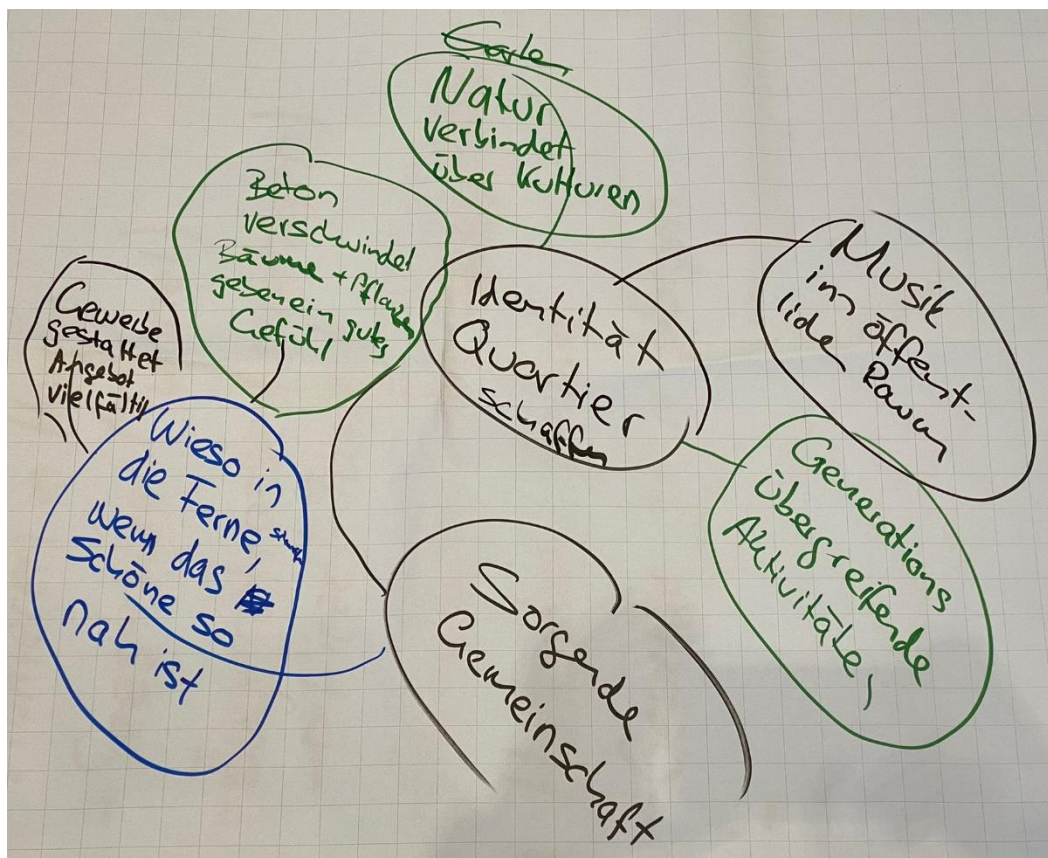 Natur
verbindet
über Kulturen
Beton
verschwindet
Bäume + Pflanzen
geben ein gutes
Gefühl
Gewerbe
gestaltet
Angebot
vielfältig
Identität
Quartier
schaffen
Musik
im öffent-
lichen Raum
Wieso in
die Ferne,
wenn das
Schöne so
nah ist
Generations
übergreifende
Aktivitäten
Sorgende
Gemeinschaft